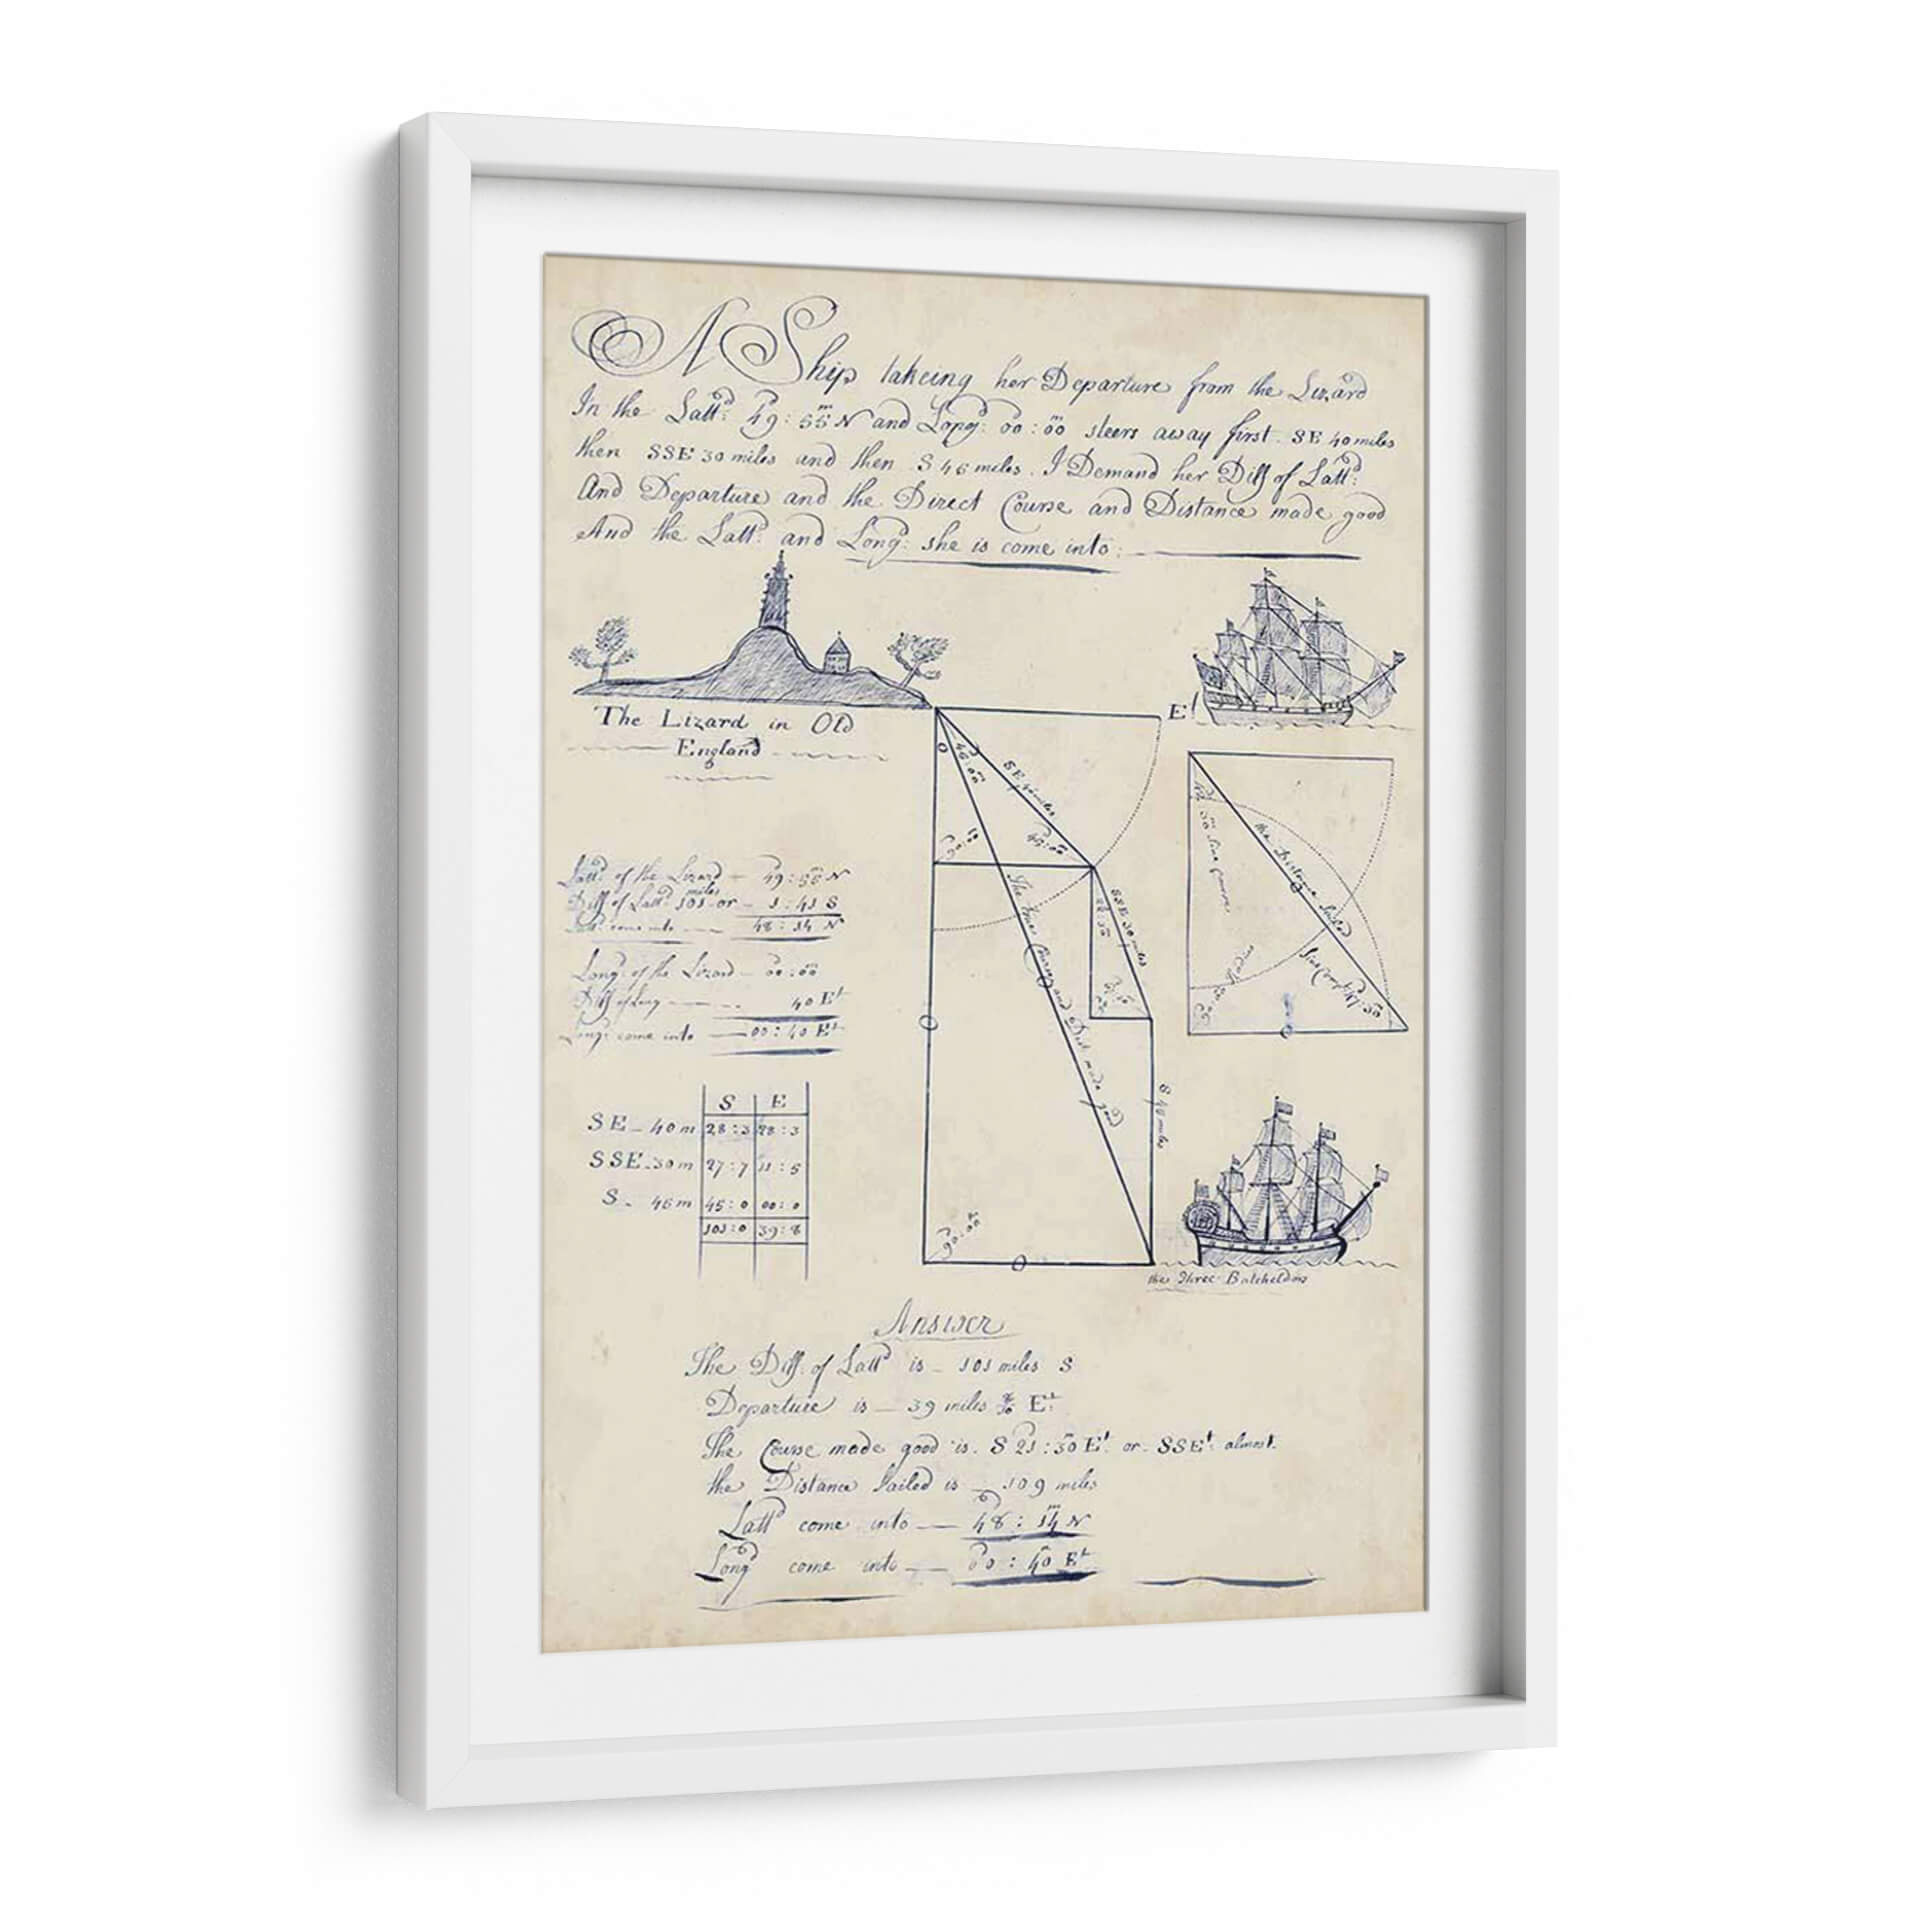 A Ship takeing her Departure from the Lizard
In the Lattd: 49d:55m N and Longd: 00d:00m steers away first SE 40 miles
then SSE 30 miles and then S 46 miles. I Demand her Diff of Lattd:
And Departure and the Direct Course and Distance made good
And the Lattd: and Longd: she is come into:
The Lizard in Old
England
E
46:00
SE 40 miles
90:00
45:00
The true Course and Dist made good
SSE 30 miles
S 46 miles
90:00
the Distance Sailed
90:00 Radius
Lattd of the Lizard - 49:55 N
Diff of Lattd 101 miles or - 1:41 S
Lattd come into - 48:14 N
Longd: of the Lizard - 00d:00m
Diff of Long - 40 Et
Longd: come into - 00:40 Et
S E
SE - 40 m 28:3 28:3
SSE - 30 m 27:7 11:5
S - 46 m 45:0 00:0
101:0 39:8
the Three Batcheldors
Answer
The Diff. of Lattd is - 101 miles S
Departure is - 39 miles 8/10 Et:
The Course made good is. S 21d:30m Et or SSEt: almost.
the Distance Sailed is - 109 miles
Lattd come into - 48d:14m N
Longd come into - 00d:40m Et